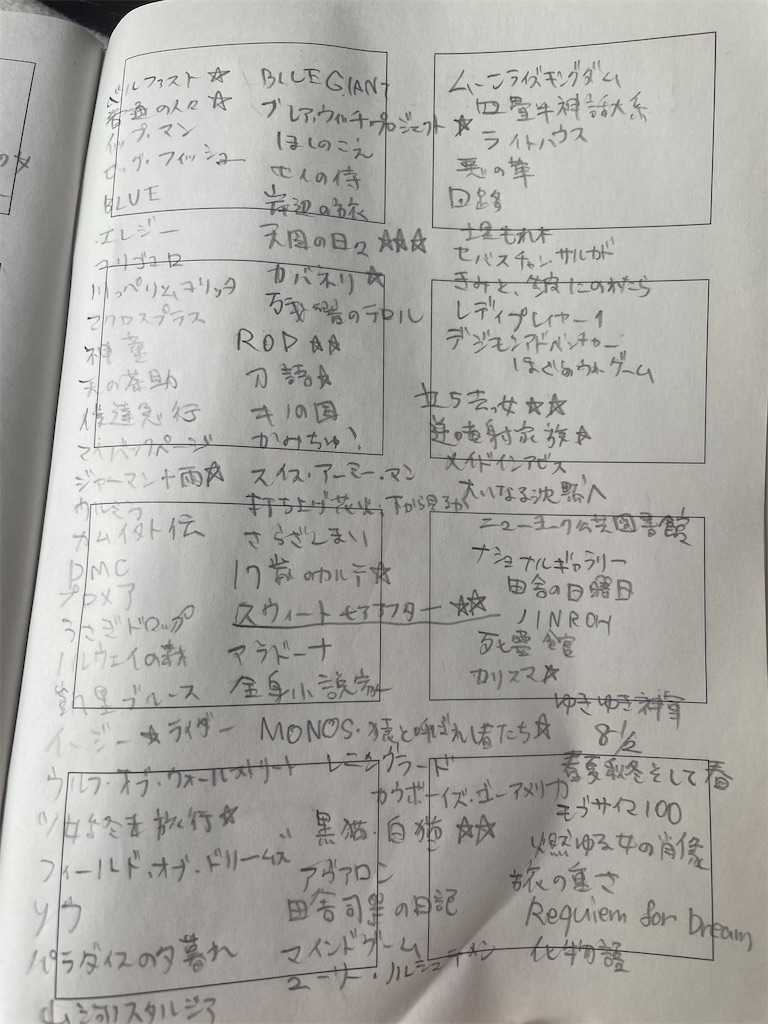 ベルファスト☆
普通の人々☆
イップ・マン
ビッグ・フィッシュ
BLUE
エレジー
川っぺりムコリッタ
マクロスプラス
神童
天の茶助
僕達急行
マイバックページ
ジャーマン+雨☆
ウルミラ
カムイ外伝
DMC
プロメア
うさぎドロップ
ノルウェイの森
ブルース
イージー☆ライダー
ウルフ・オブ・ウォールストリート
少女終末旅行☆
フィールド・オブ・ドリームズ
リウ
パラダイスの夕暮れ
山河ノスタルジア
BLUE GIANT
ブレア・ウィッチ・プロジェクト☆
ほしのこえ
七人の侍
岸辺の旅
天国の日々☆☆☆
カバネリ☆
残響のテロル
ROD☆☆
刀語☆
キノの国
かみちゅ!
スイス・アーミー・マン
打ち上げ花火、下から見るか
さらざんまい
17歳のカルテ☆
スウィート ヒアアフター☆☆
マラドーナ
全身小説家
MONOS・猿と呼ばれし者たち☆
レニングラード
カウボーイズ・ゴー・アメリカ
黒猫・白猫☆☆
アヴァロン
田舎司祭の日記
マインドゲーム
ユーリー・ノルシュテイン
ムーンライズキングダム
四畳半神話大系
ライトハウス
悪の華
回路
埋もれ木
セバスチャン・サルガド
きみと、波にのれたら
レディプレイヤー1
デジモンアドベンチャー
ぼくらのウォゲーム
立ち去った女☆☆
逆噴射家族☆
メイドインアビス
大いなる沈黙へ
ニューヨーク公共図書館
ナショナルギャラリー
田舎の日曜日
JINROH
死霊館
カリスマ☆
ゆきゆきて神軍
8 1/2
春夏秋冬そして春
モブサイコ100
燃ゆる女の肖像
旅の重さ
Requiem for Dream
化物語